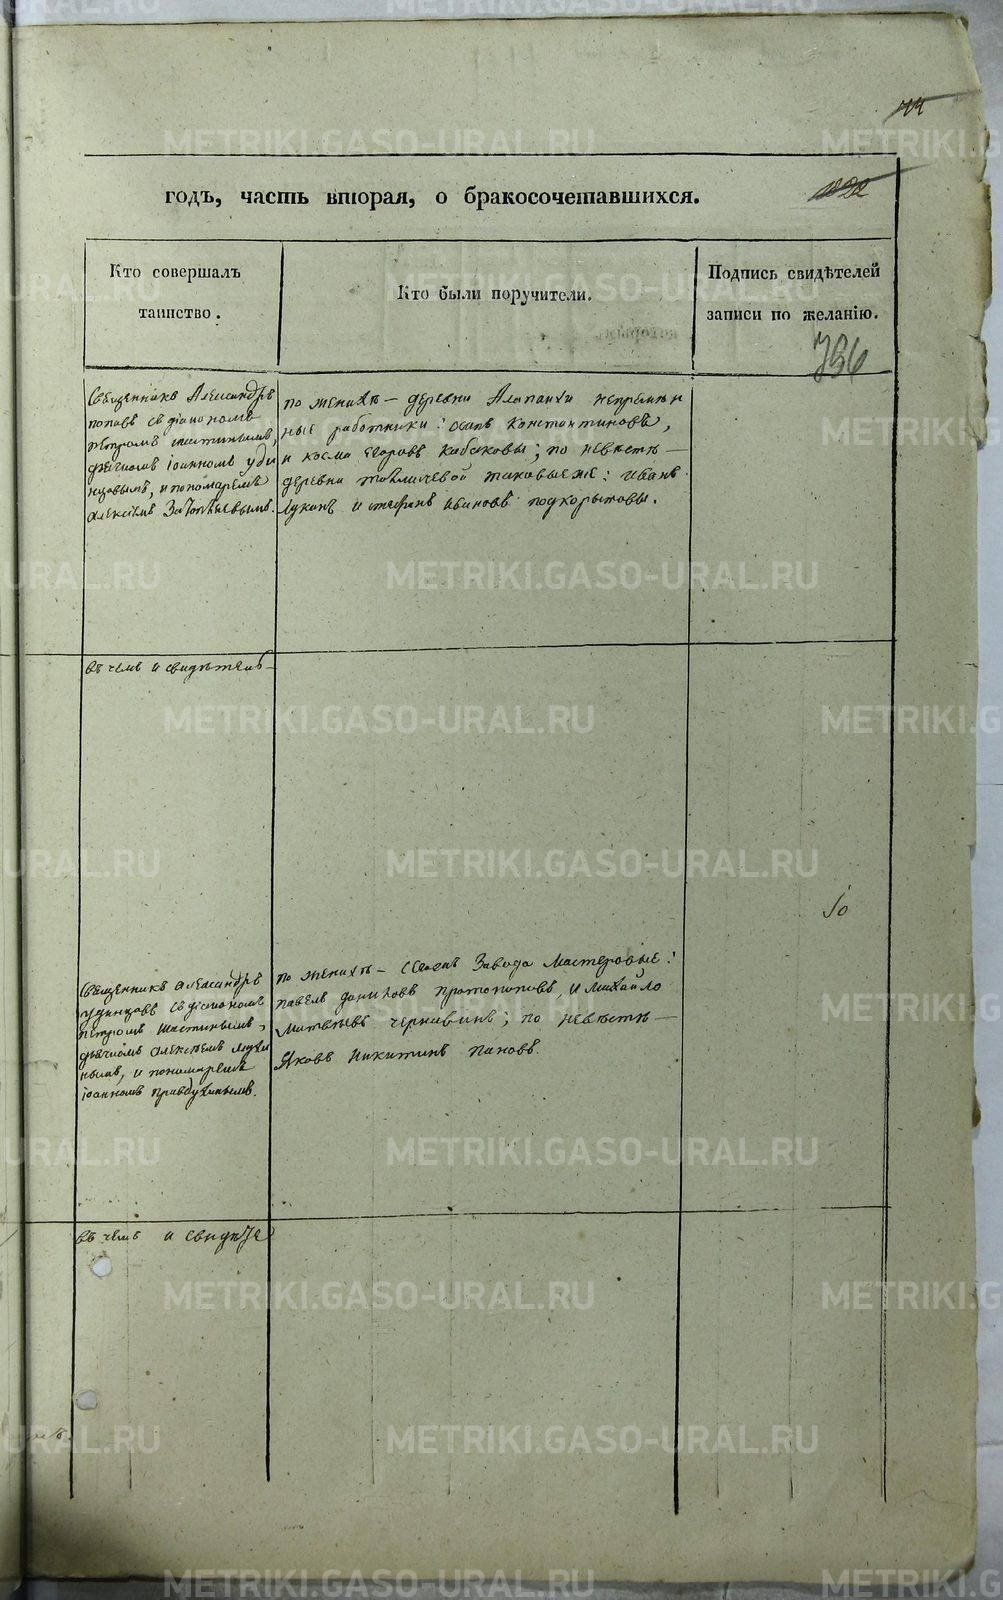 годъ, часть вторая, о бракосочетавшихся.
Кто совершалъ
таинство.
Кто были поручители.
Подпись свидѣтелей
записи по желанію.
756
Священникъ Александръ
поповъ съ діакономъ
петромъ шастинымъ,
дьячкомъ іоанномъ уди
нцовымъ, и пономаремъ
алексѣемъ
по женихѣ — деревни Алапаихи непремѣн
ные работники: осипъ константиновъ,
и косма егоровъ кабаковы; по невѣстѣ —
деревни таковыеже: иванъ
и ивановъ подкорытовы.
въ чемъ и свидѣтел
10
Священникъ александръ
удинцовъ съ діакономъ
петромъ шастинымъ,
дьячкомъ алексѣемъ
нымъ, и пономаремъ
іоанномъ
по женихѣ — Завода мастеровые:
павелъ протопоповъ, и михайло
матвѣевъ чернавинъ; по невѣстѣ —
яковъ никитинъ пановъ.
въ чемъ и свидѣте
METRIKI.GASO-URAL.RU